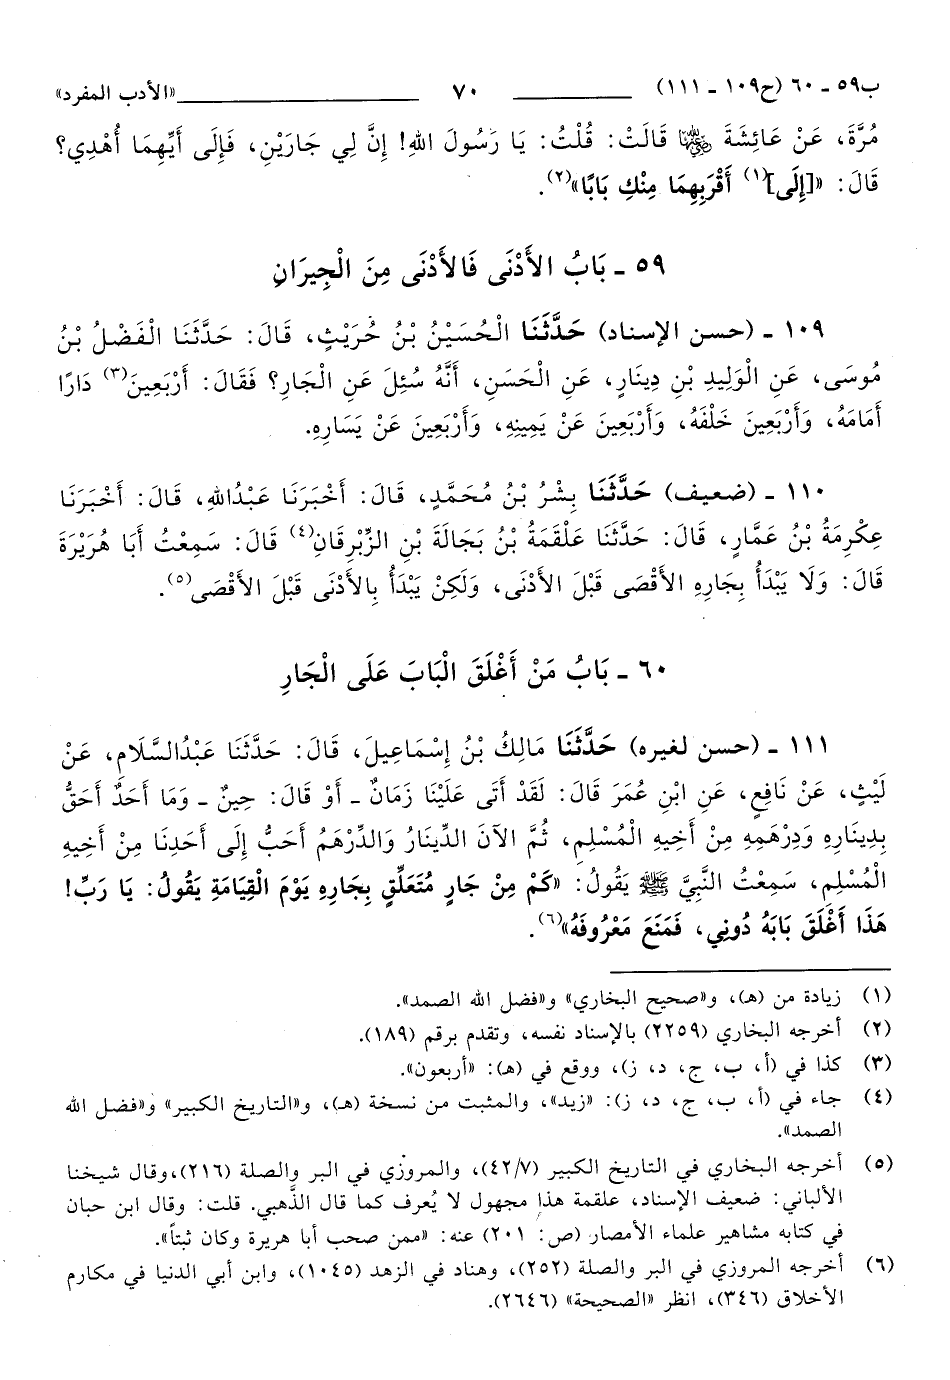 ب٥٩ ـ ٦٠ (ح١٠٩ ـ ١١١) ٧٠ «الأدب المفرد»
مُرَّةَ، عَنْ عَائِشَةَ رضي الله عنها قَالَتْ: قُلْتُ: يَا رَسُولَ اللهِ! إِنَّ لِي جَارَيْنِ، فَإِلَى أَيِّهِمَا أُهْدِي؟
قَالَ: «[إِلَى](١) أَقْرَبِهِمَا مِنْكِ بَابًا»(٢).
٥٩ ـ بَابُ الأَدْنَى فَالأَدْنَى مِنَ الْجِيرَانِ
١٠٩ ـ (حسن الإسناد) حَدَّثَنَا الْحُسَيْنُ بْنُ حُرَيْثٍ، قَالَ: حَدَّثَنَا الْفَضْلُ بْنُ
مُوسَى، عَنِ الْوَلِيدِ بْنِ دِينَارٍ، عَنِ الْحَسَنِ، أَنَّهُ سُئِلَ عَنِ الْجَارِ؟ فَقَالَ: أَرْبَعِينَ(٣) دَارًا
أَمَامَهُ، وَأَرْبَعِينَ خَلْفَهُ، وَأَرْبَعِينَ عَنْ يَمِينِهِ، وَأَرْبَعِينَ عَنْ يَسَارِهِ.
١١٠ ـ (ضعيف) حَدَّثَنَا بِشْرُ بْنُ مُحَمَّدٍ، قَالَ: أَخْبَرَنَا عَبْدُاللهِ، قَالَ: أَخْبَرَنَا
عِكْرِمَةُ بْنُ عَمَّارٍ، قَالَ: حَدَّثَنَا عَلْقَمَةُ بْنُ بَجَالَةَ بْنِ الزِّبْرِقَانِ(٤) قَالَ: سَمِعْتُ أَبَا هُرَيْرَةَ
قَالَ: وَلَا يَبْدَأُ بِجَارِهِ الأَقْصَى قَبْلَ الأَدْنَى، وَلَكِنْ يَبْدَأُ بِالأَدْنَى قَبْلَ الأَقْصَى(٥).
٦٠ ـ بَابُ مَنْ أَغْلَقَ الْبَابَ عَلَى الْجَارِ
١١١ ـ (حسن لغيره) حَدَّثَنَا مَالِكُ بْنُ إِسْمَاعِيلَ، قَالَ: حَدَّثَنَا عَبْدُالسَّلَامِ، عَنْ
لَيْثٍ، عَنْ نَافِعٍ، عَنِ ابْنِ عُمَرَ قَالَ: لَقَدْ أَتَى عَلَيْنَا زَمَانٌ ـ أَوْ قَالَ: حِينٌ ـ وَمَا أَحَدٌ أَحَقُّ
بِدِينَارِهِ وَدِرْهَمِهِ مِنْ أَخِيهِ الْمُسْلِمِ، ثُمَّ الآنَ الدِّينَارُ وَالدِّرْهَمُ أَحَبُّ إِلَى أَحَدِنَا مِنْ أَخِيهِ
الْمُسْلِمِ، سَمِعْتُ النَّبِيَّ ﷺ يَقُولُ: «كَمْ مِنْ جَارٍ مُتَعَلِّقٍ بِجَارِهِ يَوْمَ الْقِيَامَةِ يَقُولُ: يَا رَبِّ!
هَذَا أَغْلَقَ بَابَهُ دُونِي، فَمَنَعَ مَعْرُوفَهُ»(٦).
(١) زيادة من (هـ)، و«صحيح البخاري» و«فضل الله الصمد».
(٢) أخرجه البخاري (٢٢٥٩) بالإسناد نفسه، وتقدم برقم (١٨٩).
(٣) كذا في (أ، ب، ج، د، ز)، ووقع في (هـ): «أربعون».
(٤) جاء في (أ، ب، ج، د، ز): «زيد»، والمثبت من نسخة (هـ)، و«التاريخ الكبير» و«فضل الله
الصمد».
(٥) أخرجه البخاري في التاريخ الكبير (٤٢/٧)، والمروزي في البر والصلة (٢١٦)، وقال شيخنا
الألباني: ضعيف الإسناد، علقمة هذا مجهول لا يُعرف كما قال الذَّهبي. قلت: وقال ابن حبان
في كتابه مشاهير علماء الأمصار (ص: ٢٠١) عنه: «ممن صحب أبا هريرة وكان ثبتاً».
(٦) أخرجه المروزي في البر والصلة (٢٥٢)، وهناد في الزهد (١٠٤٥)، وابن أبي الدنيا في مكارم
الأخلاق (٣٤٦)، انظر «الصحيحة» (٢٦٤٦).